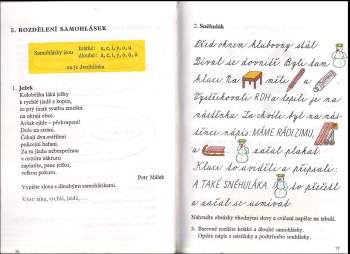 5. ROZDĚLENÍ SAMOHLÁSEK
Samohlásky jsou
krátké: a, e, i, y, o, u
dlouhé: á, é, í, ý, ó, ú, ů
ou je dvojhláska
1. Ježek
Koloběžka láká ježky
k rychlé jízdě z kopce,
že chtějí svatbu zmeškat
na okraji obce.
Avšak ejhle – překvapení!
Dole na stráni,
Čekají dva ostřílení
policejní havrani.
Za tu jízdu nebezpečnou
v ostrém zákrutu
zaplatíte, pane ježku,
velkou pokutu.
Petr Málek
Vypište slova s dlouhými samohláskami.
Vzor: láká, rychlé, jízdě, . . .
36
2. Sněhulák
Před oknem klubovny stál
Díval se dovnitř. Byli tam
kluci. Na měli a
Vystřihovali ROH a lepili je na
nástěnku. Za chvíli byl na nástěnce
nápis: MÁME RÁDI ZIMU,
a začal plakat.
Kluci to uviděli a připsali:
A TAKÉ SNĚHULÁKA. to přečetl
a začal se usmívat.
Nahraďte obrázky vhodnými slovy a cvičení napište na tabuli.
3. Barevně rozlište krátké a dlouhé samohlásky.
Opište nápis z nástěnky a podtrhněte souhlásky.
37